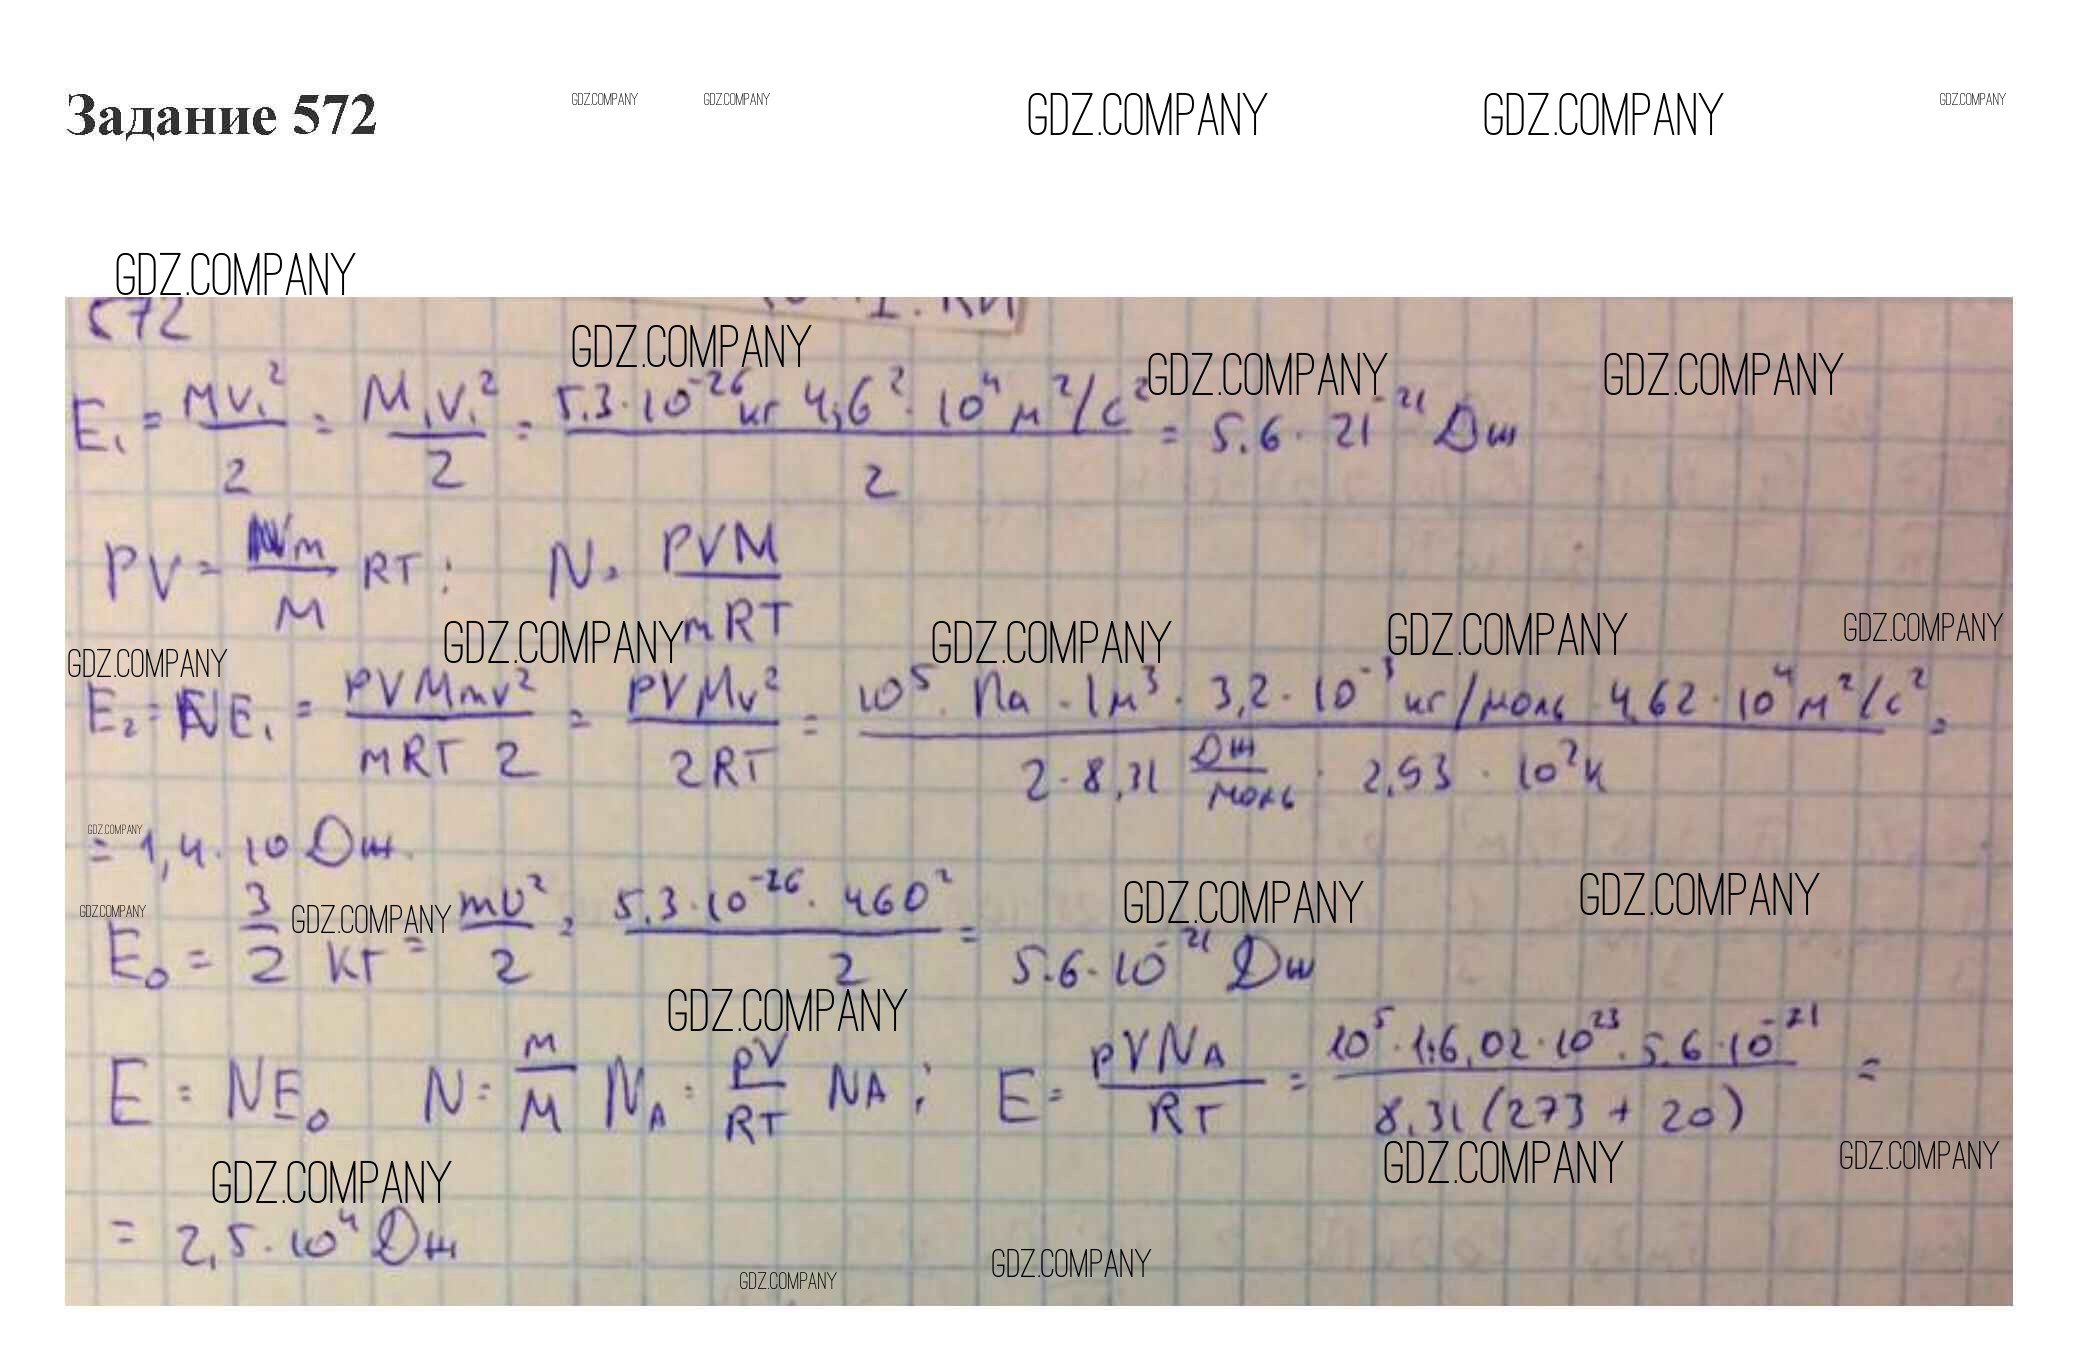 Задание 572
GDZ.COMPANY GDZ.COMPANY GDZ.COMPANY GDZ.COMPANY GDZ.COMPANY
GDZ.COMPANY
572
GDZ.COMPANY GDZ.COMPANY GDZ.COMPANY
E₁ = mv₁²/2 = M₁v₁²/2 = 5.3·10⁻²⁶ кг 4,6²·10⁴ м²/с²/2 = 5.6·21⁻²¹ Дж
PV = Nm/M RT; N = PVM/mRT
GDZ.COMPANY GDZ.COMPANY GDZ.COMPANY GDZ.COMPANY GDZ.COMPANY
E₂ = NE₁ = PVMmv²/mRT 2 = PVMv²/2RT = 10⁵·Па·1м³·3,2·10⁻³ кг/моль·4,62·10⁴ м²/с²/2·8,31 Дж/моль·2,93·10²К =
GDZ.COMPANY
= 1,4·10 Дж
GDZ.COMPANY GDZ.COMPANY GDZ.COMPANY GDZ.COMPANY
E₀ = 3/2 кт = mv²/2 = 5.3·10⁻²⁶·460²/2 = 5.6·10⁻²¹ Дж
GDZ.COMPANY
E = NE₀ N = m/M Nᴀ = pV/RT NA; E = pVNᴀ/RT = 10⁵·1·6,02·10²³·5.6·10⁻²¹/8,31(273 + 20) =
GDZ.COMPANY GDZ.COMPANY GDZ.COMPANY
= 2,5·10⁴ Дж
GDZ.COMPANY GDZ.COMPANY